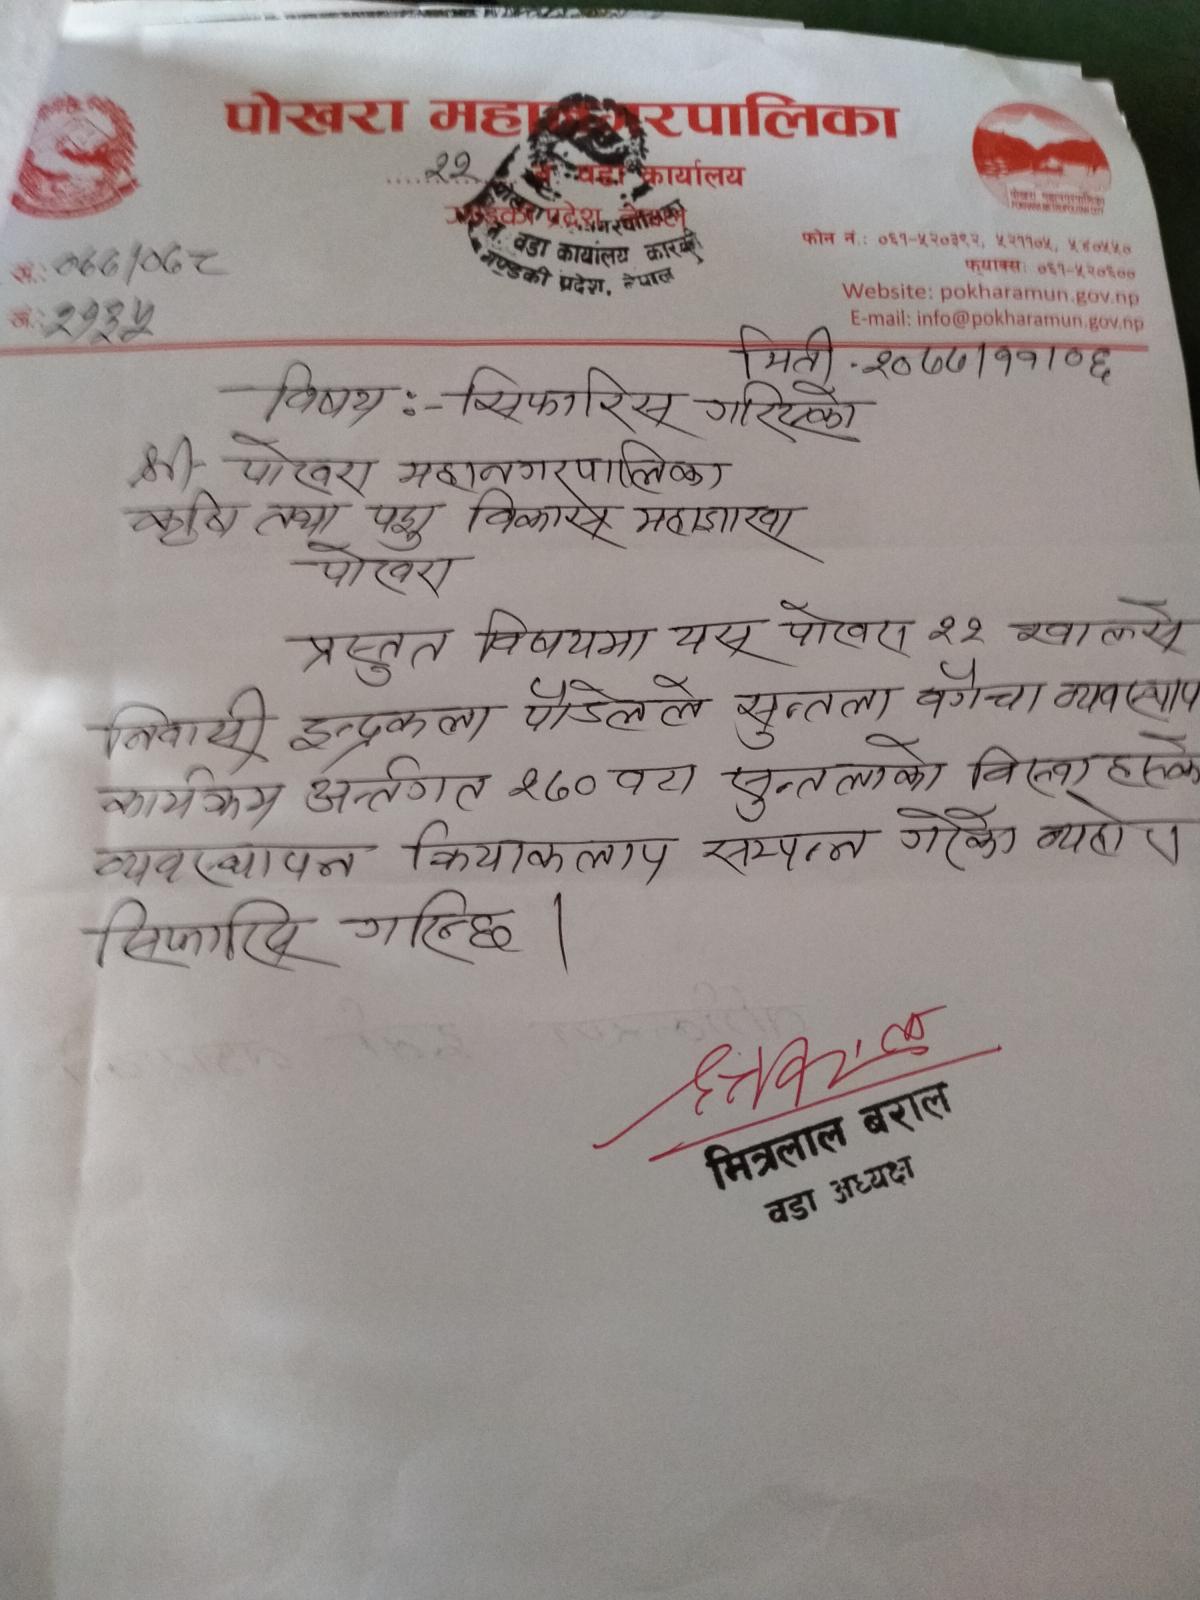 पोखरा महानगरपालिका
२२ नं. वडा कार्यालय
गण्डकी प्रदेश, नेपाल
नं. वडा कार्यालय कास्की
गण्डकी प्रदेश, नेपाल
पोखरा महानगरपालिका
फोन नं.: ०६१-५२०३९२, ५२११०५, ५४०५५०
फ्याक्स: ०६१-५२०६००
Website: pokharamun.gov.np
E-mail: info@pokharamun.gov.np
सं.: ०७७/०७८
नं.: २१३५
मिती - २०७७/११/०६
विषय :- सिफारिस गरिएको
श्री पोखरा महानगरपालिका
कृषि तथा पशु विकास महाशाखा
पोखरा
प्रस्तुत विषयमा यस पोखरा २२
निवासी इन्द्रकला पौडेलले सुन्तला वगैचा व्यवस्थाप
कार्यक्रम अर्न्तगत २७० वटा सुन्तलाको
व्यवस्थापन क्रियाकलाप सम्पन्न गरेको व्यहोरा
सिफारिस गरिन्छ ।
मित्रलाल बराल
वडा अध्यक्ष